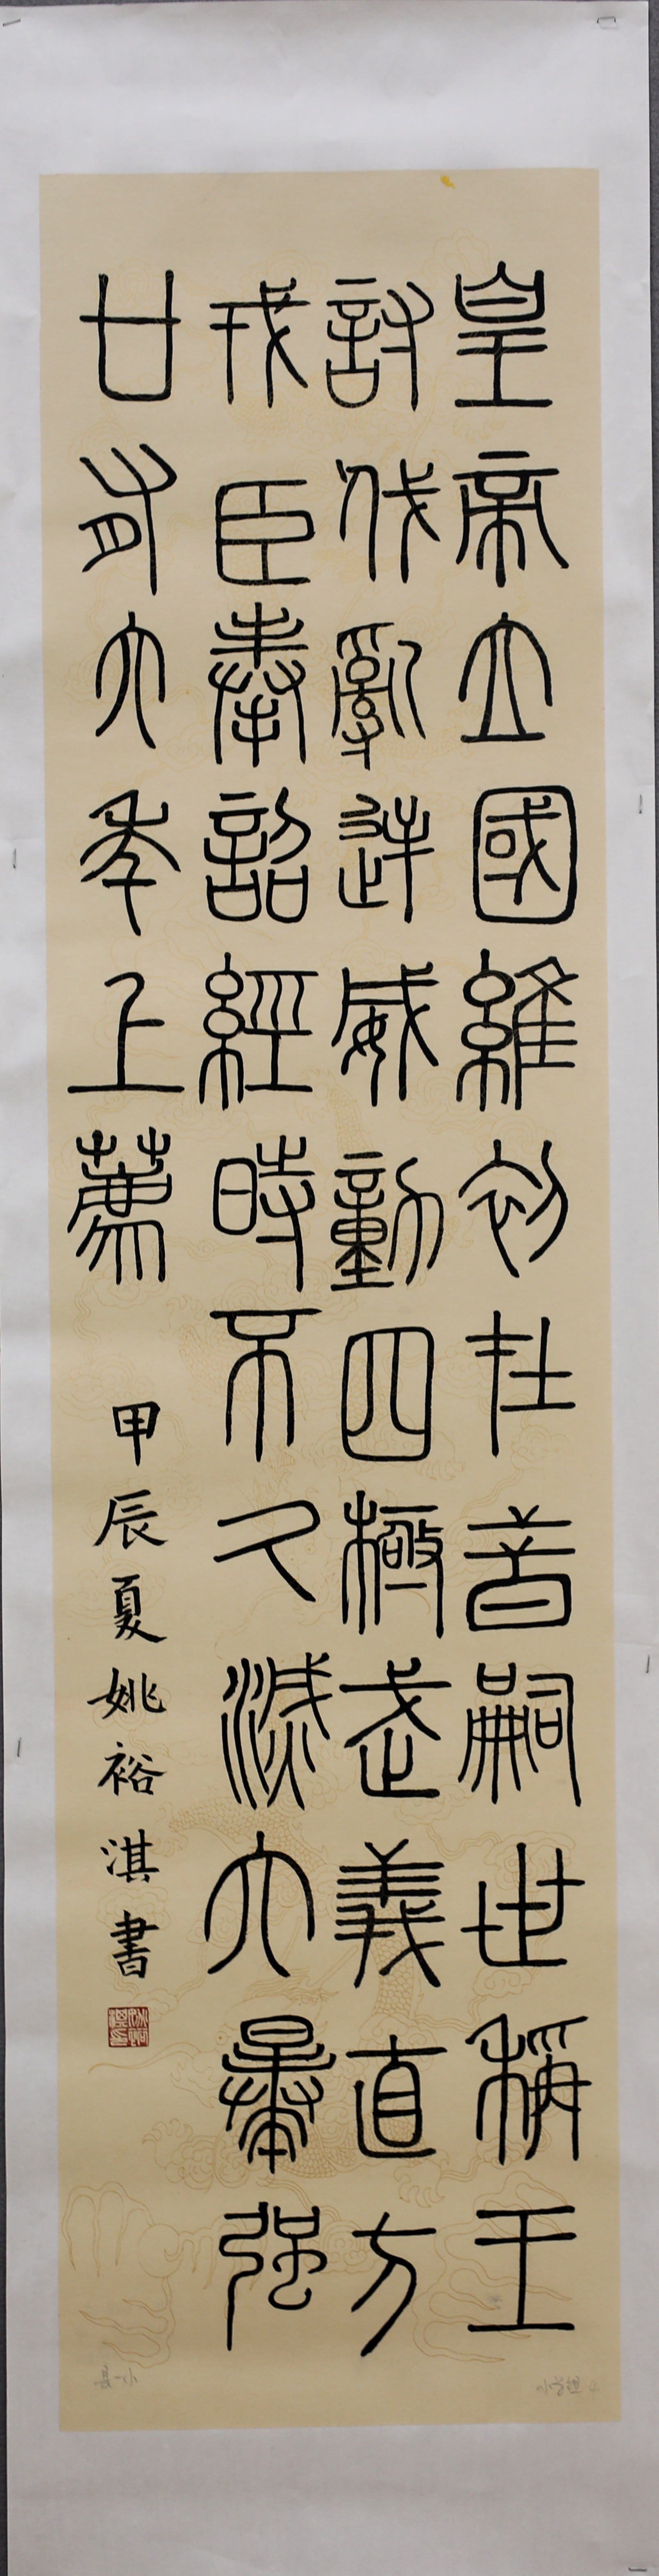 皇帝立國維初在昔嗣世稱王
討伐亂逆威動四極武義直方
戎臣奉詔經時不久滅六暴強
廿有六年上薦
甲辰夏姚裕淇書